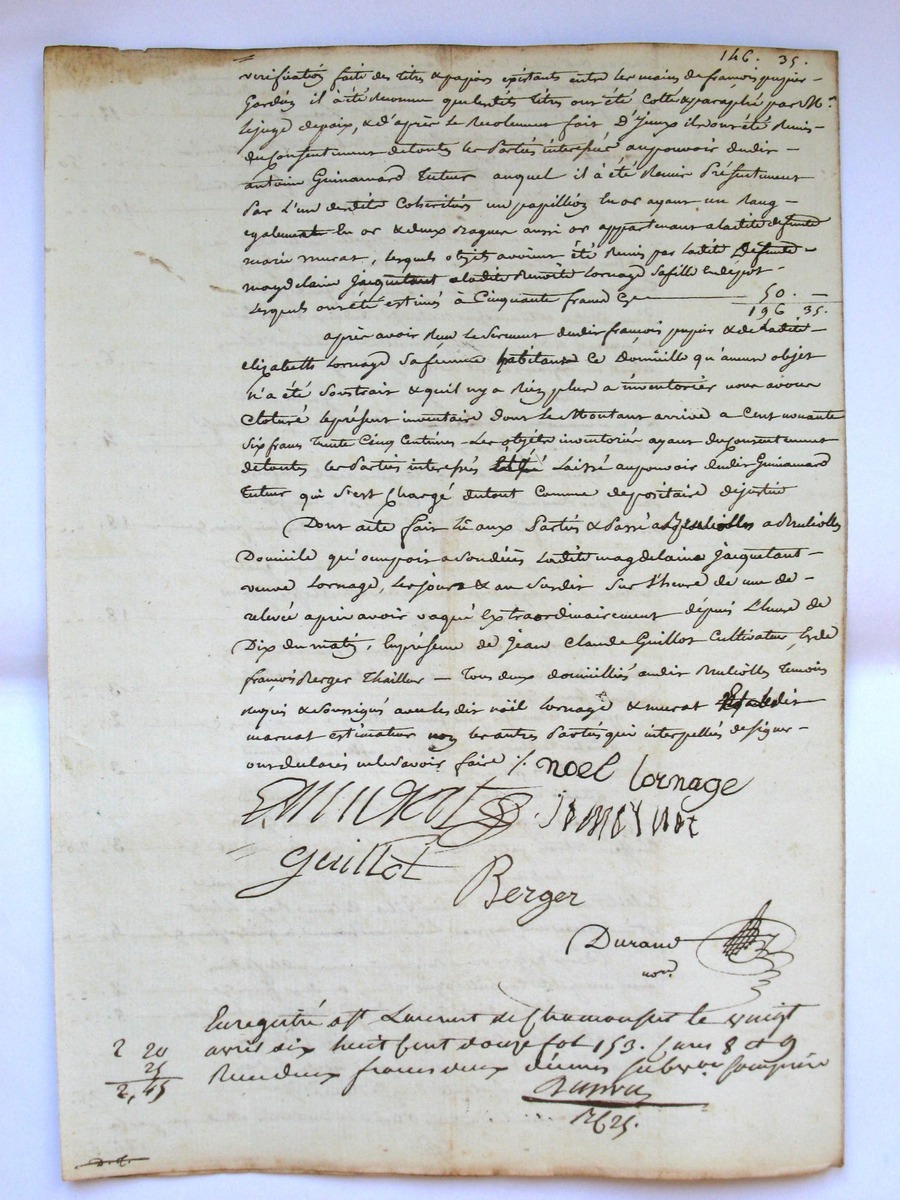 146. 35.
verification faite des titres & papiers existants entre les mains de françois pupier
Gardien il à été reconnu que lesdits titres ont été cotté & paraphé par Mr.
Lejuge depaix, & d'après Le Recolement fait D'yceux ils ont été Remis
du Consentement detouts les Parties interessé aupouvoir dudit
antoine Guinamard Tuteur auquel il à été Remis Présentement
Par L'un desdits Coheritiers un papillion En or ayant un
egalement En or & deux Bagues aussi or appartenant aladite defunte
marie murat, Lesquels objets avoient été Remis par Ladite Defunte
magdelaine Jacquetant aladite Benoite Lornage Safille Endepot
Lesquels ont été estimés à Cinquante francs Cy 50.
196. 35.
après avoir Reçu Le Serment dudit françois pupier & de Ladite
elizabeth Lornage Safemme habitants Ce Domicille qu'aucun objet
n'a été Soustrait & quil ny a Rien plus a inventorier nous avons
Cloturé leprésent inventaire dont Le Montant arrive a Cent nonante
Six francs Trente Cinq Centimes Les objets inventoriés ayant duConsentement
detoutes les Parties interessés Laissé aupouvoir dudit Guinamard
Tuteur qui S'est Chargé dutout Comme depositaire dejustice
Dont acte fait Lu aux Parties & Passé
Domicile qu'occupoit Ladite magdelaine Jacquetant
veuve Lornage, Les jours & an Susdit Sur l'heure de une de
relevée après avoir vaqué Extraordinairement dépuis L'heure de
Dix du matin, Enprésence de Jean Claude Guillot Cultivateur, & de
françois Berger Thailleur Tous deux domicilliés audit Temoins
Requis & Soussignés avec lesdits noël Lornage & murat
estimateur non les autres Parties qui interpellés designer
ont declarés nele Savoir faire ∕. noel lornage
murat
guillot
Berger
Durand
nore.
Enregistré a St Laurent de Chamousset le vingt
avril dix huit Cent douze fol 153. Cases 8 et 9
Reçu deux francs deux décimes subvon Comprise
2 20
25
2,45